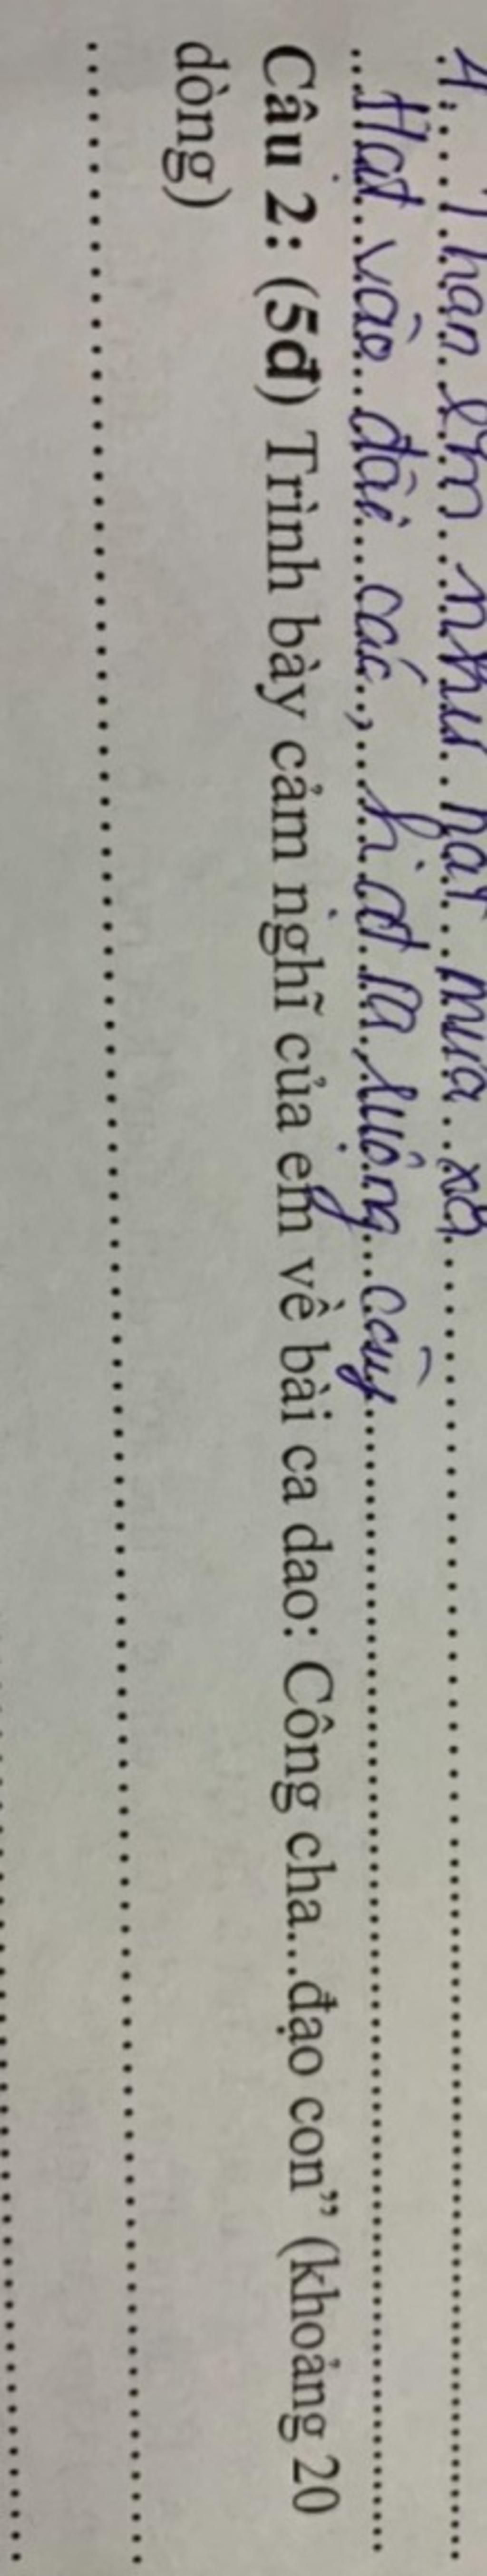 4. Thân em như hạt mưa xa
Hạt vào đài các, hạt ra luộng cày
Câu 2: (5đ) Trình bày cảm nghĩ của em về bài ca dao: Công cha...đạo con” (khoảng 20
dòng)